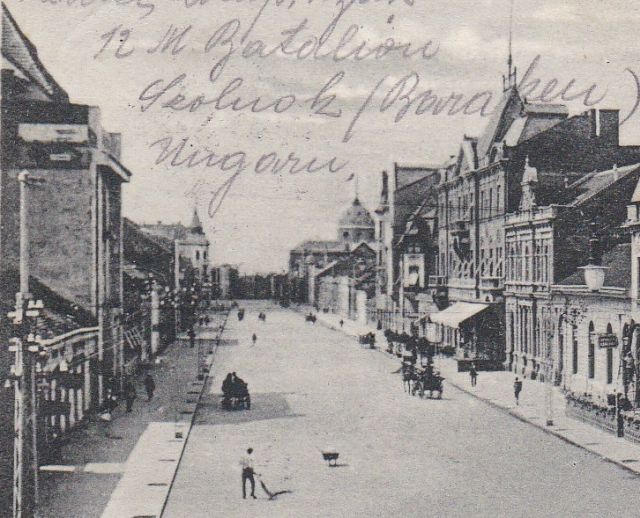 12 M. Batalión
Szolnok (Baraken)
Ungarn,